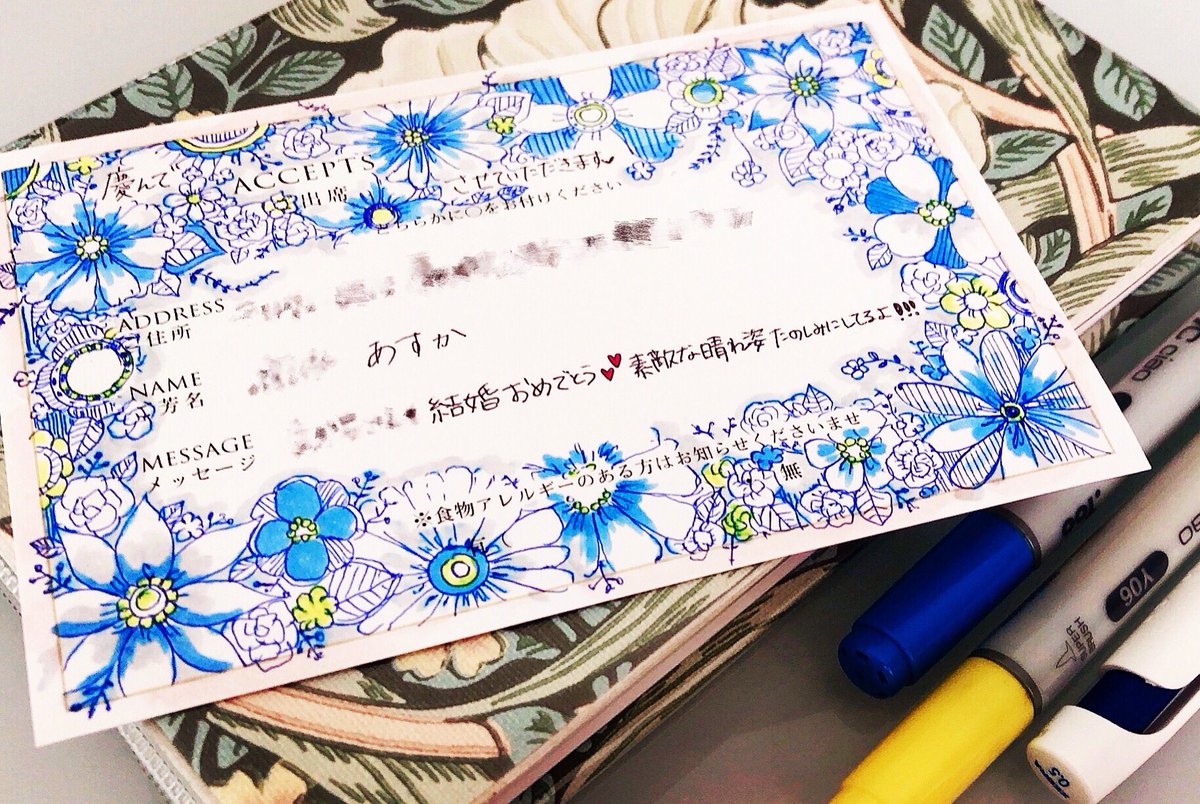 慶んで ACCEPTS させていただきます
出席
どちらかに○をお付けください
ADDRESS
ご住所
NAME あすか
芳名
MESSAGE 結婚おめでとう 素敵な晴れ姿たのしみにしてるよ!!!
メッセージ
※食物アレルギーのある方はお知らせくださいませ
無
ciao
Y06
0.5